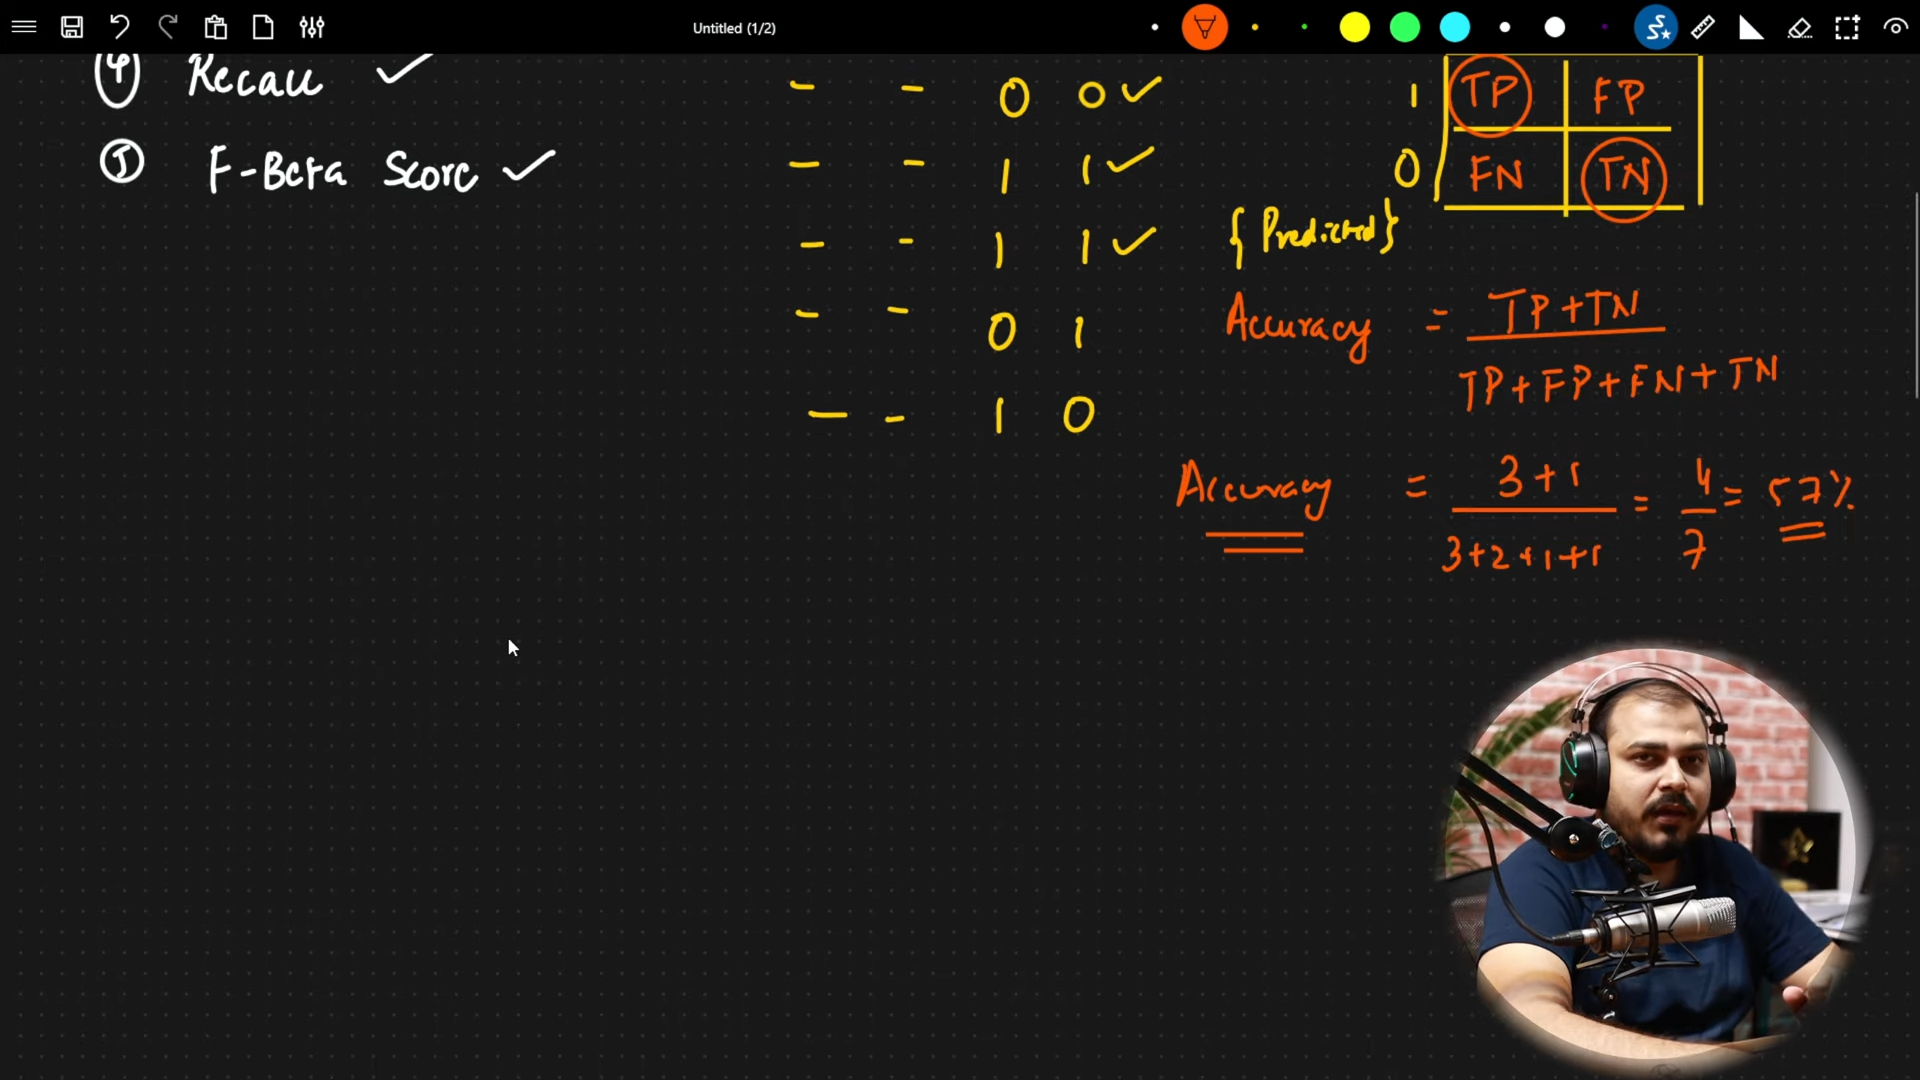 Untitled (1/2)
④ Recall ✓
⑤ F-Beta Score ✓
- - 0 0 ✓
- - 1 1 ✓
- - 1 1 ✓
- - 0 1
- - 1 0
1 TP FP
0 FN TN
{ Predicted }
Accuracy = TP+TN
TP+FP+FN+TN
Accuracy = 3+1 = 4 = 57%
3+2+1+1 7